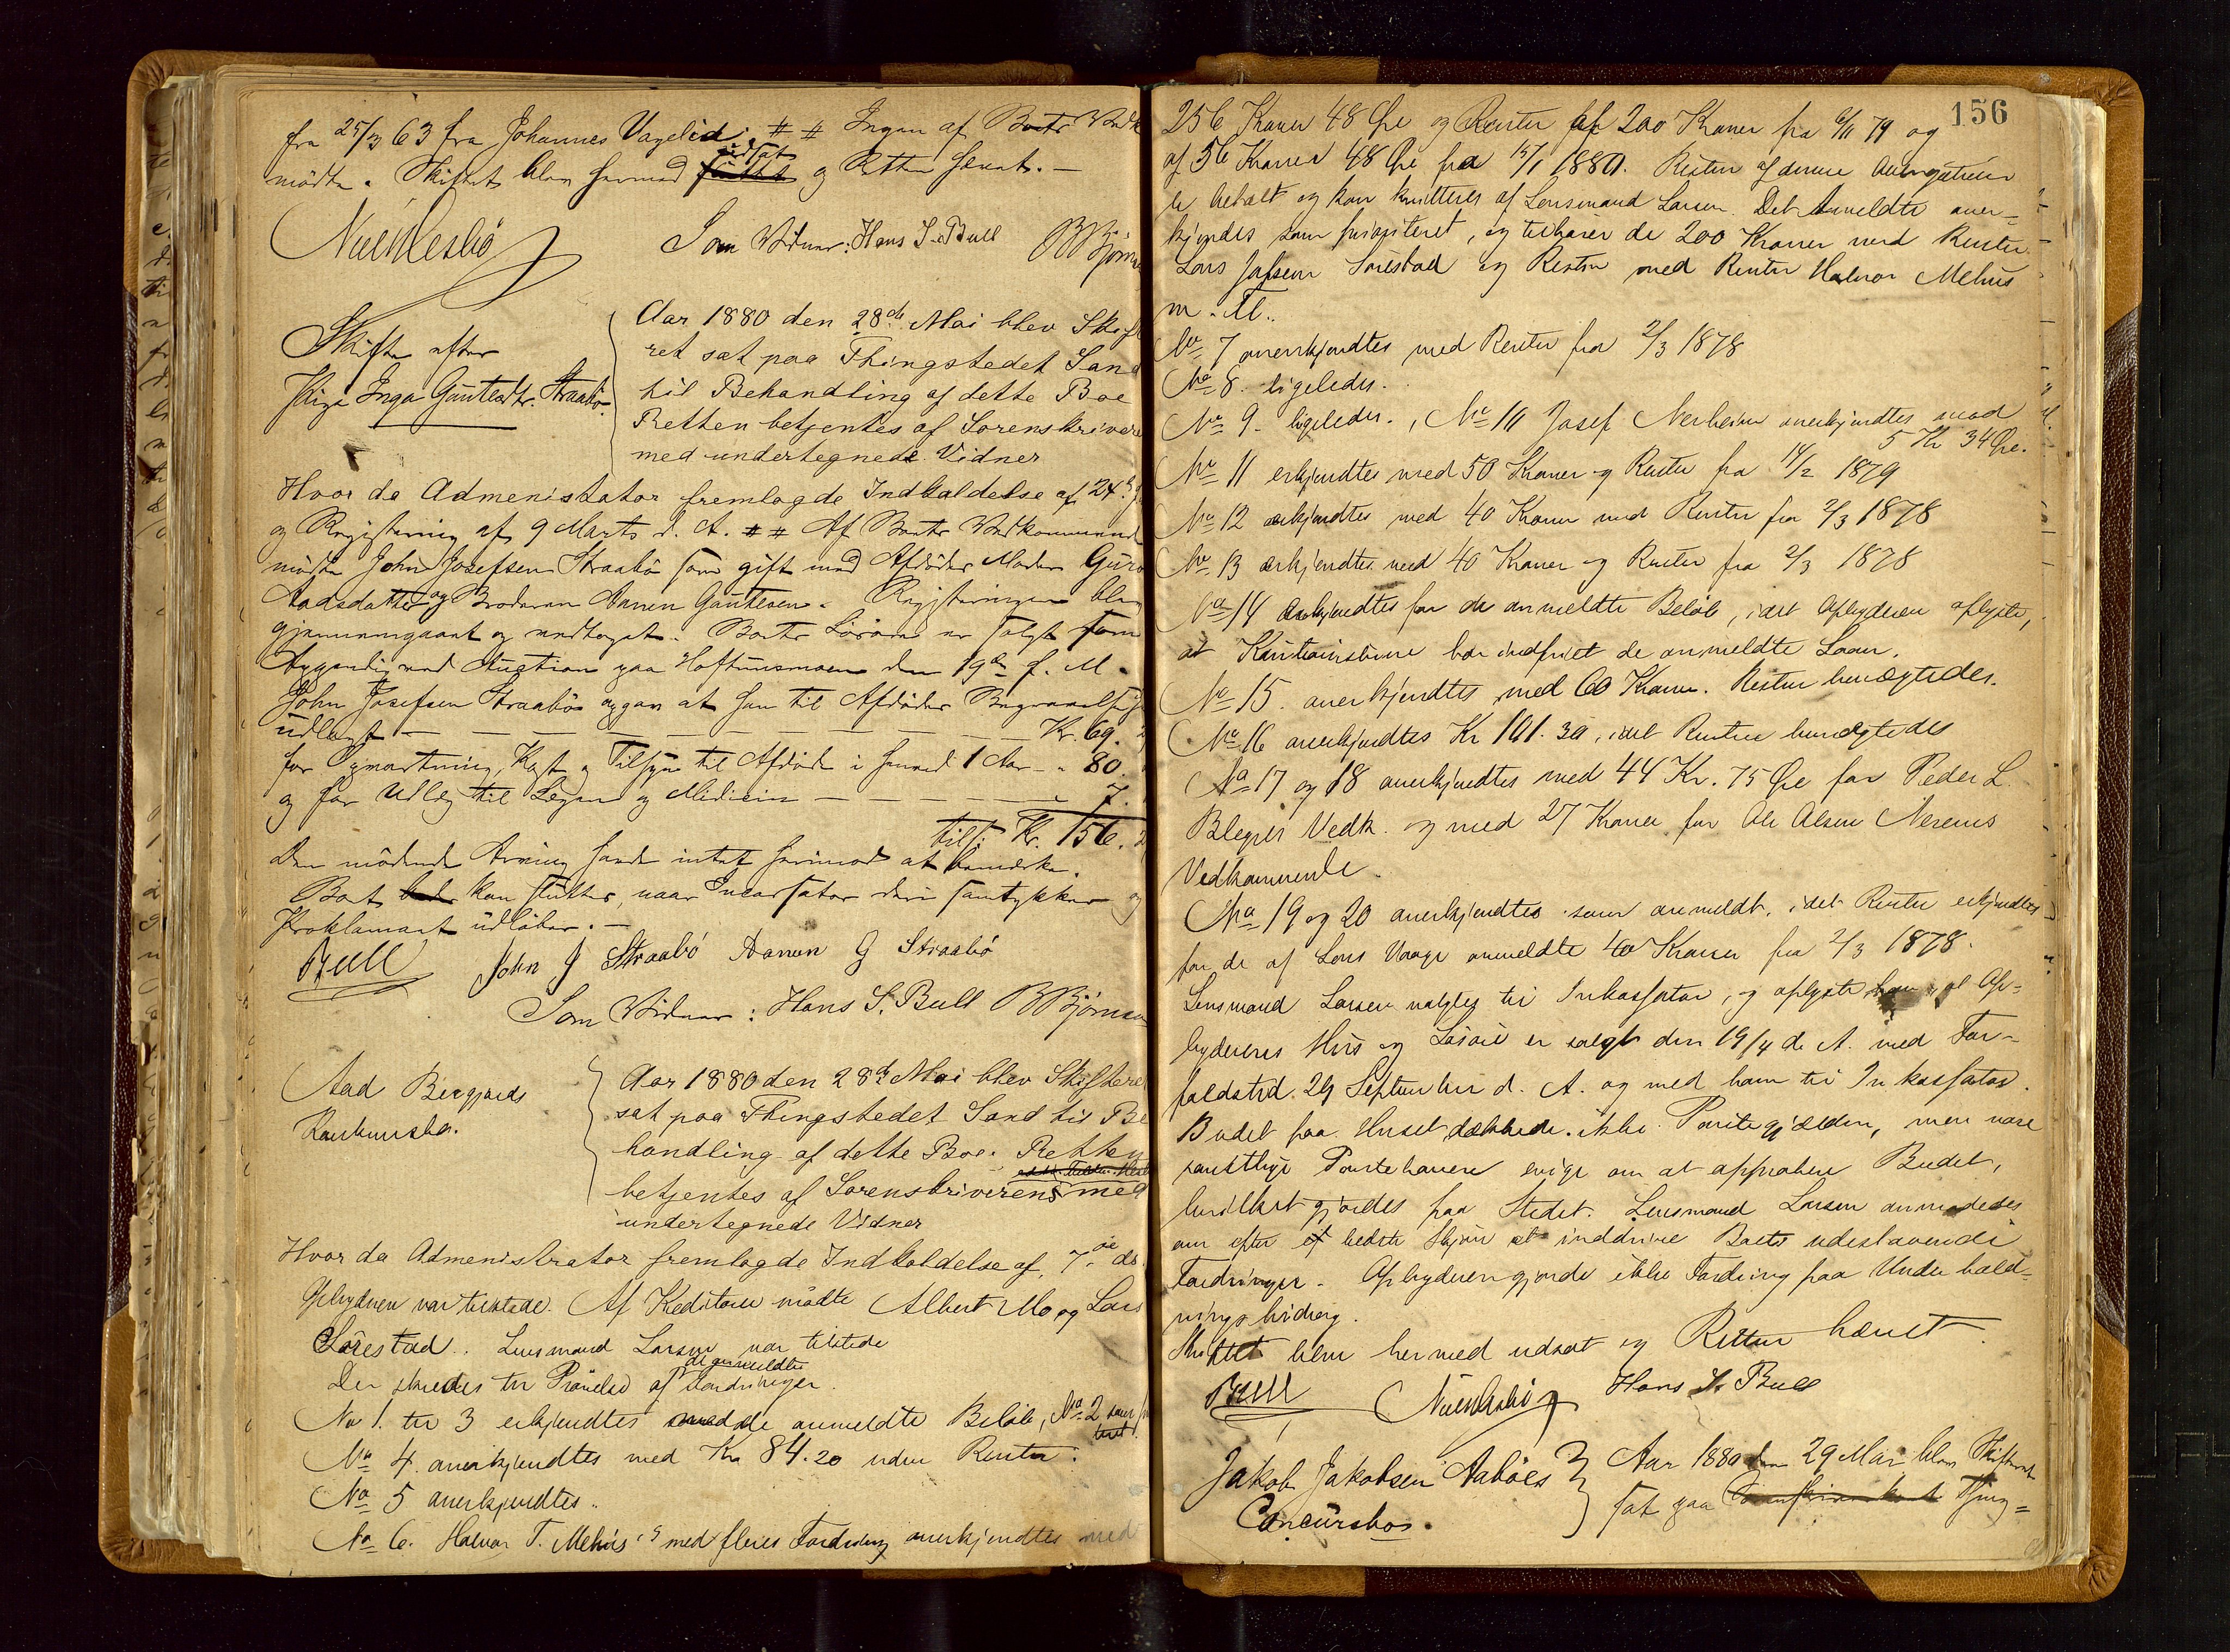 fra 25/3 63 fra Johannes Vagelid. # # Ingen af Boets Vedk
mödte. Skiftet blev hermed udsat sluttet og Retten hævet. —
Som Vidner: Hans S. Bull BBjörns
Skifte efter
Pige Inga Gautesdtr. Straabö.
Aar 1880 den 28de Mai blev Skif
ret sat paa Thingstedet Sand
til Behandling af dette Boe
Retten betjentes af Sorenskrivere
med undertegnede Vidner
Hvor da Admenistator fremlagde Indkaldelse af 24
og Registering af 9 Marts d. A. # # Af Boets Vedkommend
mödte John Josefsen Straabö som gift med Afdödes Moder Guro
Aadsdatter og Broderen Aanen Gautesen. Registeringen blev
gjennemgaaet og vedtaget. Boets Lösöre er solgt som
ved Auction paa den 19de f. M.
John Josefsen Straabö opgav at han til Afdödes Begravelse
udlagt — — — — — — — Kr. 69.
for Opvartning, Kost og Tilsyn til Afdöde i henved 1 Aar — " 80.
og for Udlæg til Lægen og Medicin — — — — — 7.
tils. Kr. 156.
Den mödende Arving havde intet herimod at bemærke.
Boet kan sluttes, naar Incassator deri samtykker og
Proklamaet udlöber. —
Bull John J Straabö Aanen G Straabö
Som Vidner: Hans S. Bull BBjörnsen
Aad Bergjords
Konkursbo.
Aar 1880 den 28de Mai blev Skiftere
sat paa Thingstedet Sand til Be
handling af dette Boe. Retten
betjentes af Sorenskriverens med
undertegnede Vidner
Hvor da Admenistrator fremlagde Indkaldelse af 7de ds.
Opbyderen var tilstede. Af Kreditorer mödte Albert Mo og Lars
Sörestad. Lensmand Larsen var tilstede
de anmeldte
Der skredes til Prövelse af Fordringer.
No 1. til 3 erkjendtes med de anmeldte Belöb, No 2 som
No 4. anerkjendtes med Kr 84.20 uden Renter.
No 5 anerkjendtes.
No 6. Halvor T. Mehus's med fleres Fordring anerkjendtes med
156
256 Kroner 48 Öre og Renter af 200 Kroner fra 6/11 79 og
af 56 Kroner 48 Öre fra 15/1 1880. Resten af denne
er betalt og kan kvitteres af Lensmand Larsen. Det Anmeldte aner=
kjendes som prioriteret, og tilhörer de 200 Kroner med Renter
Lars Jafsen Sörestad og Resten med Renter Halvor Mehus
m. fl.
No 7 anerkjendtes med Renter fra 2/3 1878
No 8. ligeledes.
No 9. ligeledes., No 10 Josef Nerheim anerkjendtes med
5 Kr 34 Öre.
No 11 erkjendtes med 50 Kroner og Renter fra 14/2 1879
No 12 erkjendtes med 40 Kroner med Renter fra 2/3 1878
No 13 erkjendtes med 40 Kroner og Renter fra 2/3 1878
No 14 erkjendtes for de anmeldte Belöb, idet Opbyderen oplyste,
at Kautionisterne har indfriet de anmeldte Laan.
No 15. anerkjendtes med 60 Kroner. Resten benægtedes.
No 16 anerkjendtes Kr 101.30, idet Renten benægtedes
No 17 og 18 anerkjendtes med 44 Kr. 75 Öre for Peder L.
Vedk. og med 27 Kroner for Ole Olsen
Vedkommende.
No 19 og 20 anerkjendtes som anmeldt, idet Renter erkjendtes
for de af Lars Vaage anmeldte 40 Kroner fra 2/3 1878.
Lensmand Larsen valgtes til Inkassator, og oplyste han, at Op=
byderens Hus og Lösöre er solgt den 19/4 d. A. med For=
faldstid 29 September d. A. og med ham til Inkassator.
Budet paa Huset dækkede ikke Pantegjælden, men vare
samtlige Panthavere enige om at approbere Budet,
hvilket gjordes paa Stedet. Lensmand Larsen anmodedes
om efter bedste Skjön at inddrive Boets udestaaende
Fordringer. Opbyderen gjorde ikke Fordring paa Underhold=
ningsbidrag.
Skiftet blev hermed udsat og Retten hævet.
Bull Hans S. Bull
Jakob Jakobsen Aaböes
Concursbo.
Aar 1880 den 29 Mai blev Skifteret
sat paa Thing=